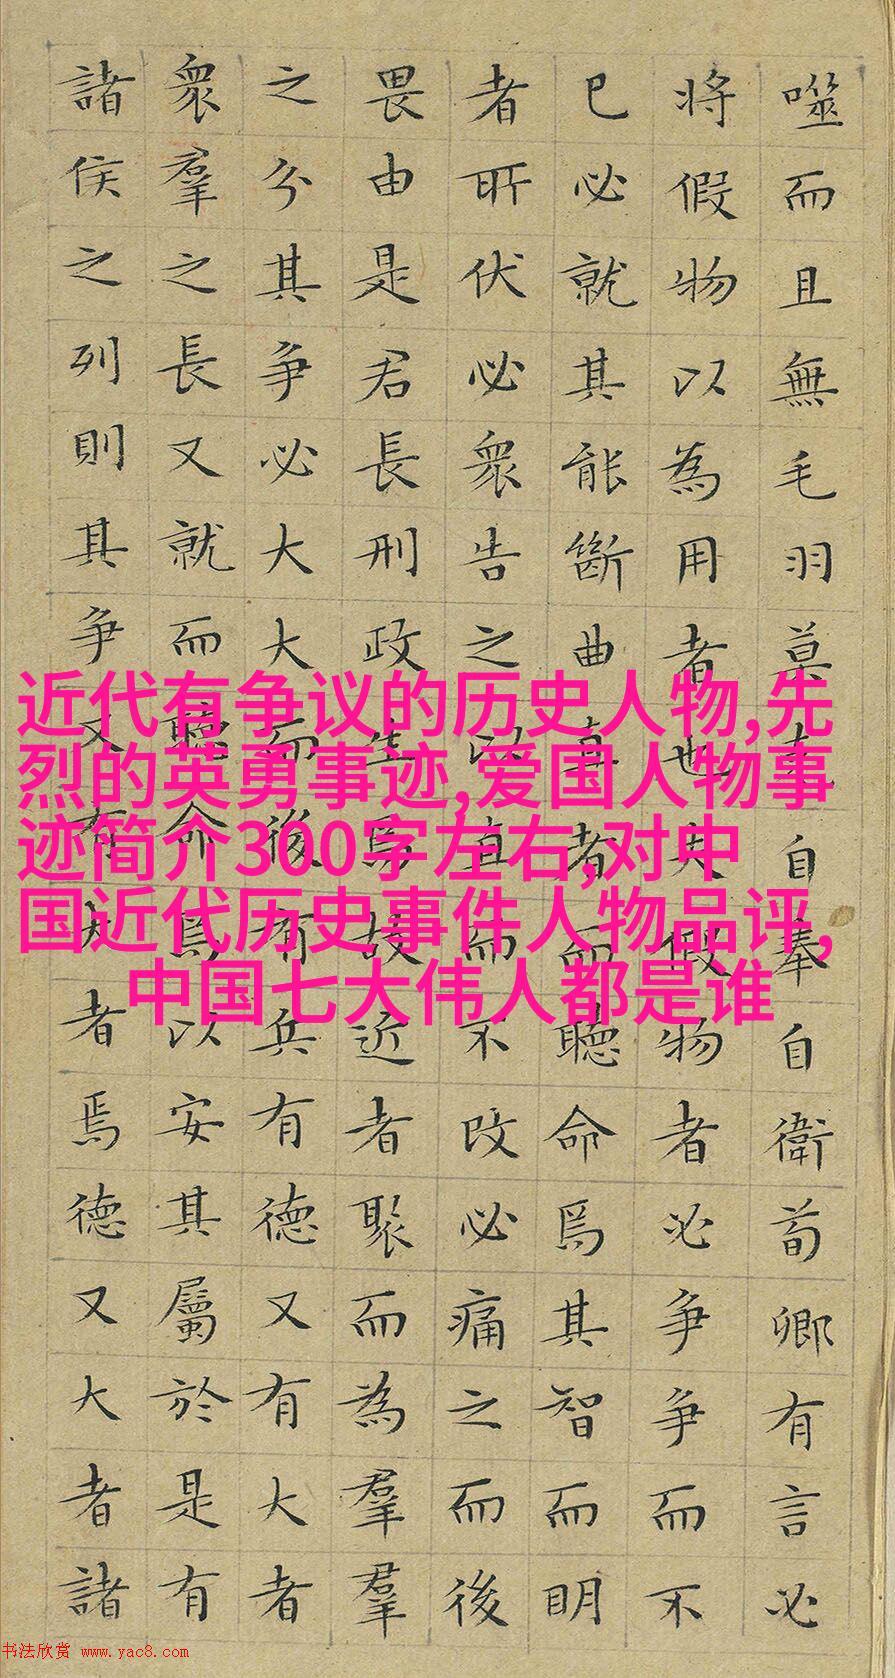 噬而且無毛羽莫克自奉自衛荀卿有言必
将假物以為用者也夫假物者必争争而不
已必就其能斷曲直者而聽命焉其智而明
者所伏必衆告之以直而不改必痛之而後
畏由是君長刑政生焉故近者聚而為羣羣
之分其争必大大而後有兵有德又有大者
衆羣之長又就而聽命焉以安其屬於是有
諸侯之列則其争又有大者焉德又大者諸
近代有争议的历史人物,先
烈的英勇事迹,爱国人物事
迹简介300字左右,对中
国近代历史事件人物品评,
中国七大伟人都是谁
书法欣赏 www.yac8.com